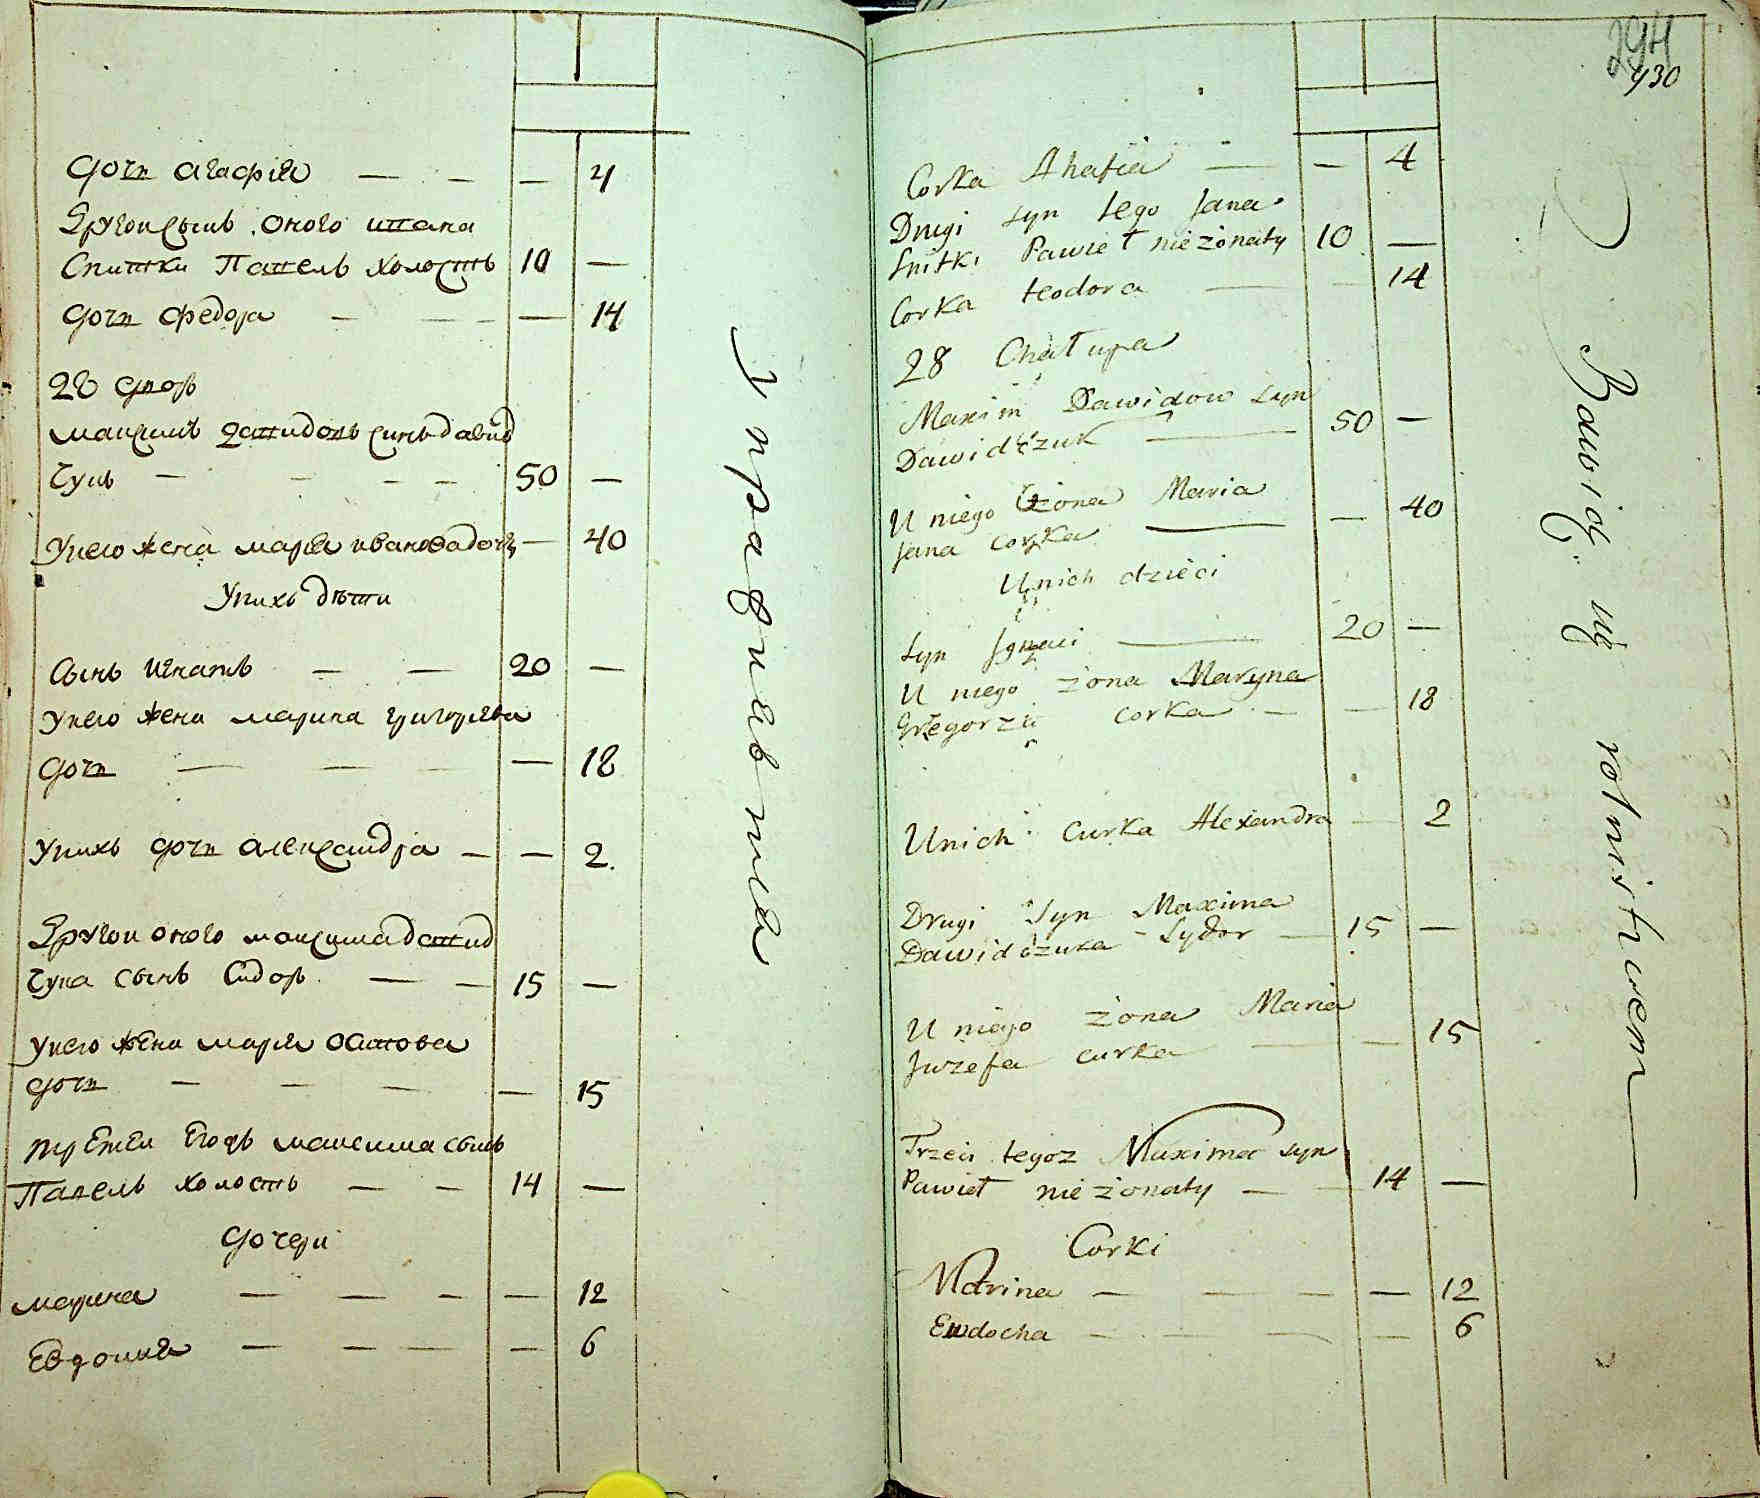 дочь агафия — — — 4
Другои сынъ оного ивана
Снитки Павелъ холостъ 10 —
дочь федора — — — 14
28 дворъ
максимъ давидовъ сынъ давид
чукъ — — — — 50 —
Унего жена мария иванова дочь — 40
Унихъ дѣти
Сынъ игнатъ — — 20 —
Унего жена марина григорьева
дочь — — — — 18
Унихъ дочь александра — — 2.
Другои оного максима давид
чука сынъ Сидоръ — — 15 —
Унего жена мария осипова
дочь — — — — 15
третеи Егожъ максима сынъ
Павелъ холостъ — — 14 —
дочери
марина — — — — 12
Евдокия — — — — 6
Упражняется
294
430
Corka Ahafia — — 4
Drugi syn tego Jana
Snitki Paweł nie żonaty 10 —
Corka teodora — — 14
28 Chałupa
Maxim Dawidow syn
Dawidczuk — 50 —
U niego żona Maria
Jana corka — — 40
U nich dzieci
syn Jgnaci — 20 —
U niego żona Maryna
Gregorza corka — — 18
Unich curka Alexandra — 2
Drugi syn Maxima
Dawidczuka Sydor — 15 —
U niego żona Maria
Juzefa curka — — 15
Trzeci tegoz Maxima syn
Pawieł nie żonaty — — 14 —
Corki
Marina — — — — 12
Ewdocha — — — — 6
Bawiąć się rolnictwem